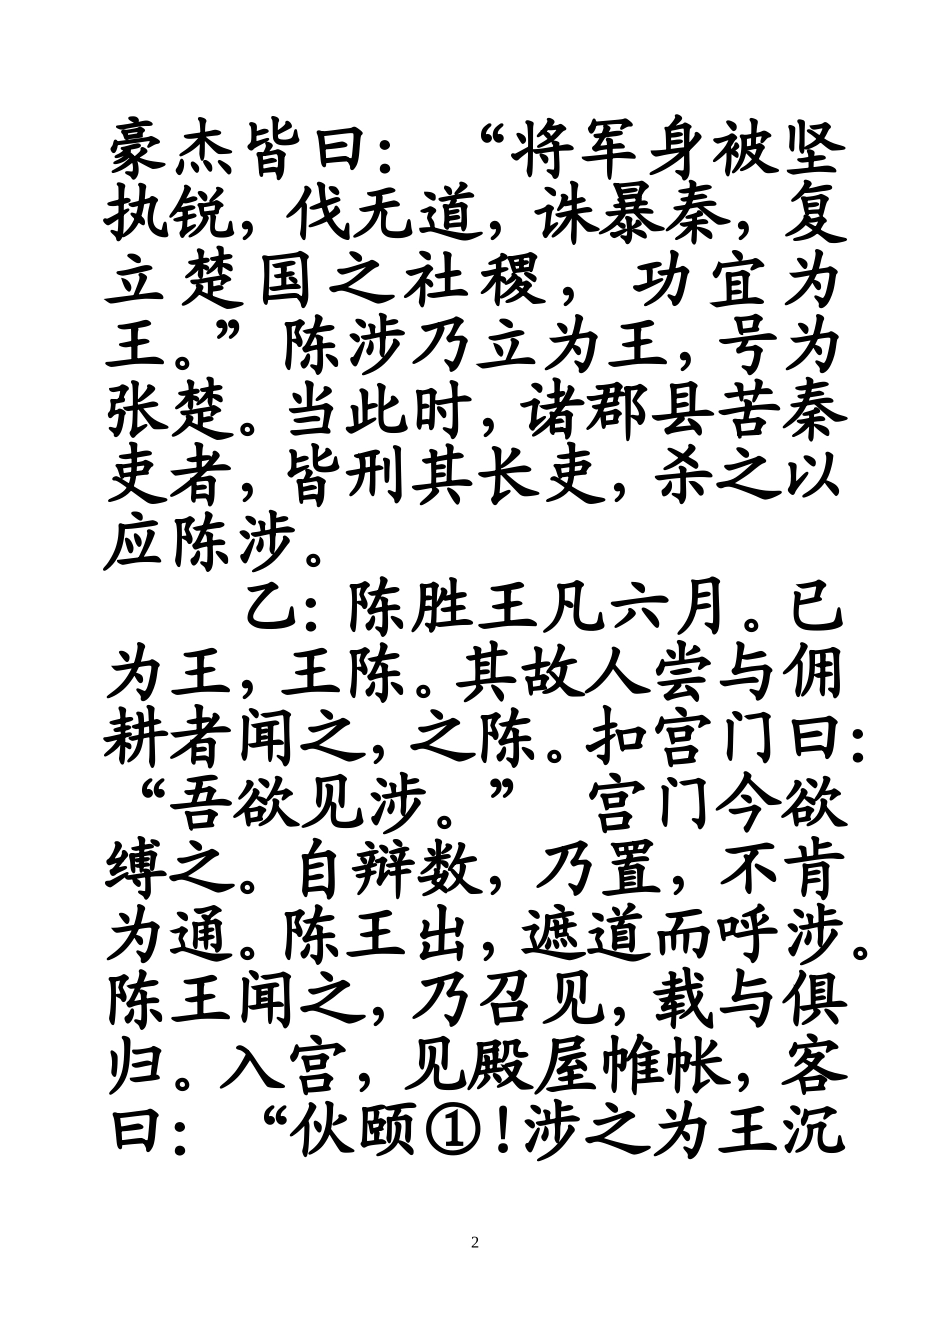 豪杰皆曰： “将军身被坚
执锐，伐无道，诛暴秦，复
立楚国之社稷， 功宜为
王。” 陈涉乃立为王，号为
张楚。当此时，诸郡县苦秦
吏者，皆刑其长吏，杀之以
应陈涉。
乙：陈胜王凡六月。已
为王，王陈。其故人尝与佣
耕者闻之，之陈。扣宫门曰：
“吾欲见涉。” 宫门今欲
缚之。自辩数，乃置，不肯
为通。陈王出，遮道而呼涉。
陈王闻之，乃召见，载与俱
归。入宫，见殿屋帷帐，客
曰： “伙颐①！涉之为王沉
2